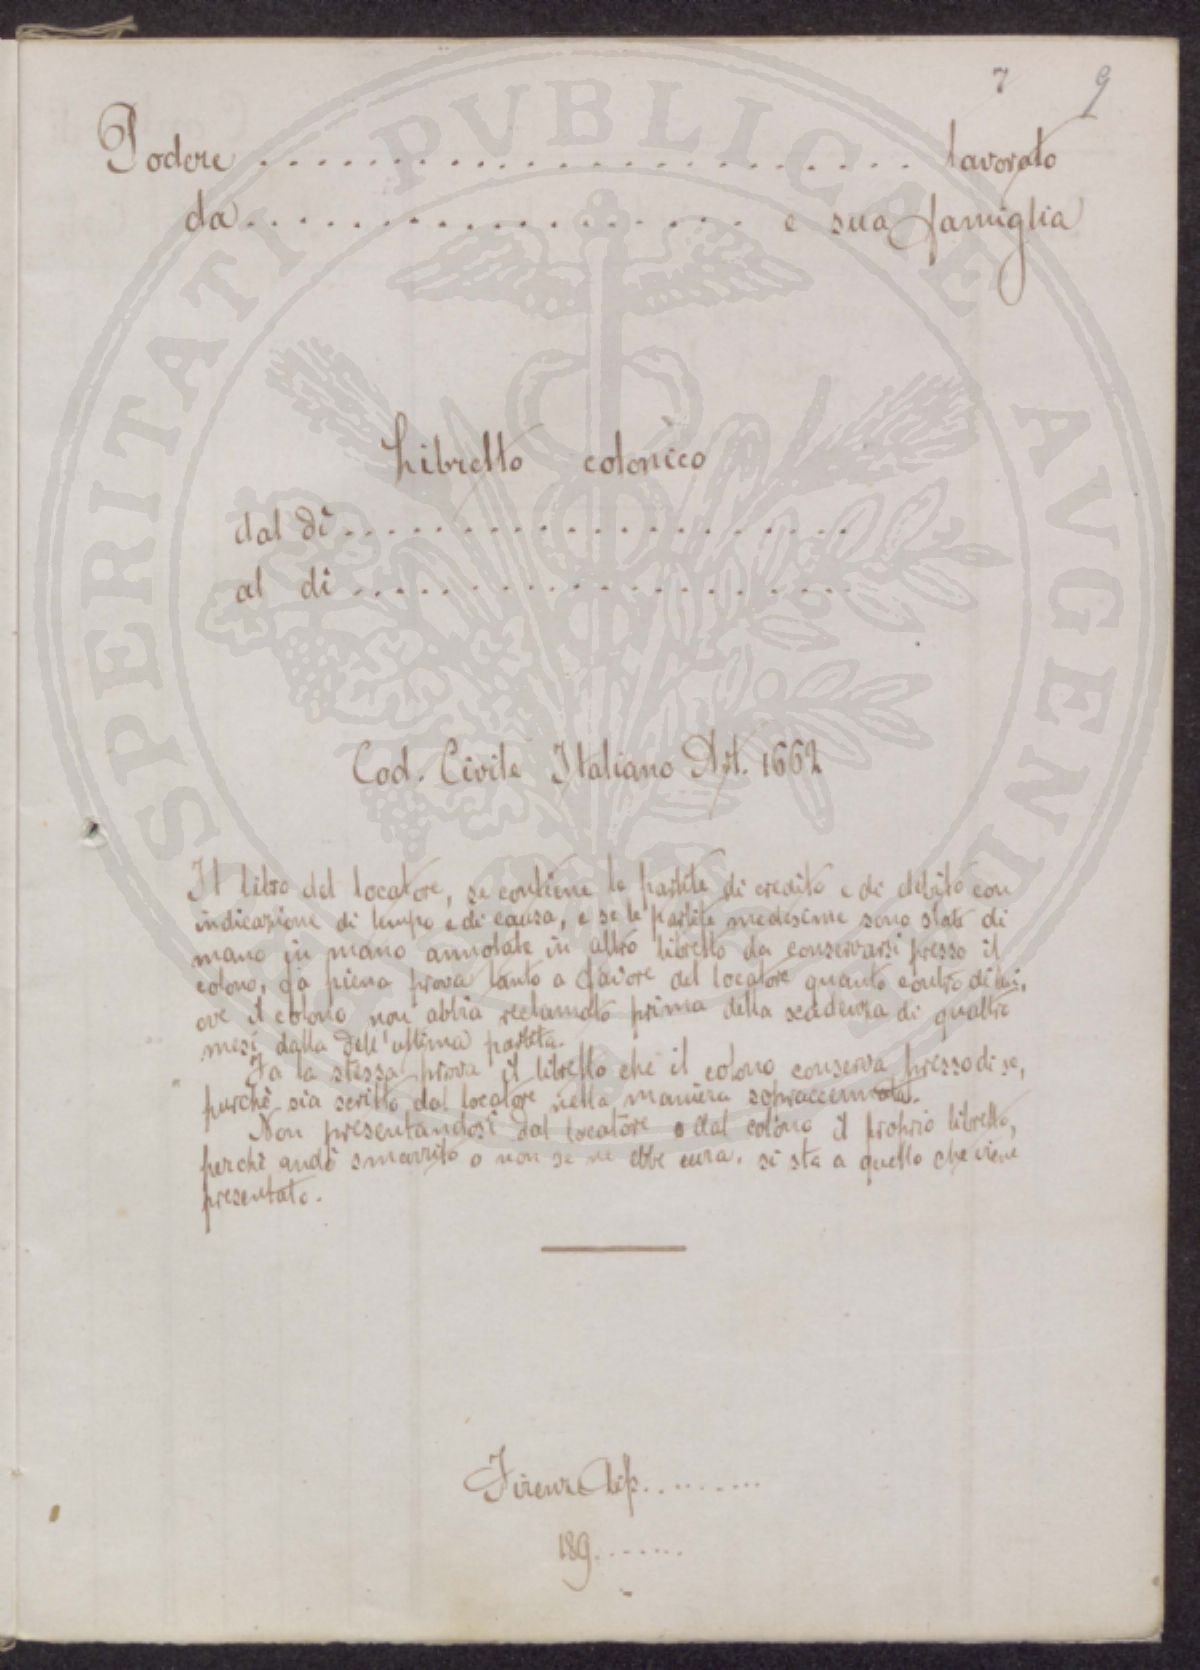 7 9
Podere ........................ lavorato
da .................. e sua famiglia
Libretto colonico
dal dì ..................
al dì ..................
Cod. Civile Italiano Art. 1662
Il libro del locatore, se contiene le partite di credito e di debito con
indicazione di tempo e di causa, e se le partite medesime sono state di
mano in mano annotate in altro libretto da conservarsi presso il
colono, fa piena prova tanto a favore del locatore quanto contro di lui,
ove il colono non abbia reclamato prima della scadenza di quattro
mesi dalla dell'ultima partita.
Fa la stessa prova il libretto che il colono conserva presso di se,
purchè sia scritto dal locatore nella maniera sopraccennata.
Non presentandosi dal locatore o dal colono il proprio libretto,
perchè andò smarrito o non se ne ebbe cura, si sta a quello che viene
presentato.
Firenze Tip..........
189.......
PROSPERITATI PVBLICAE AVGENDAE